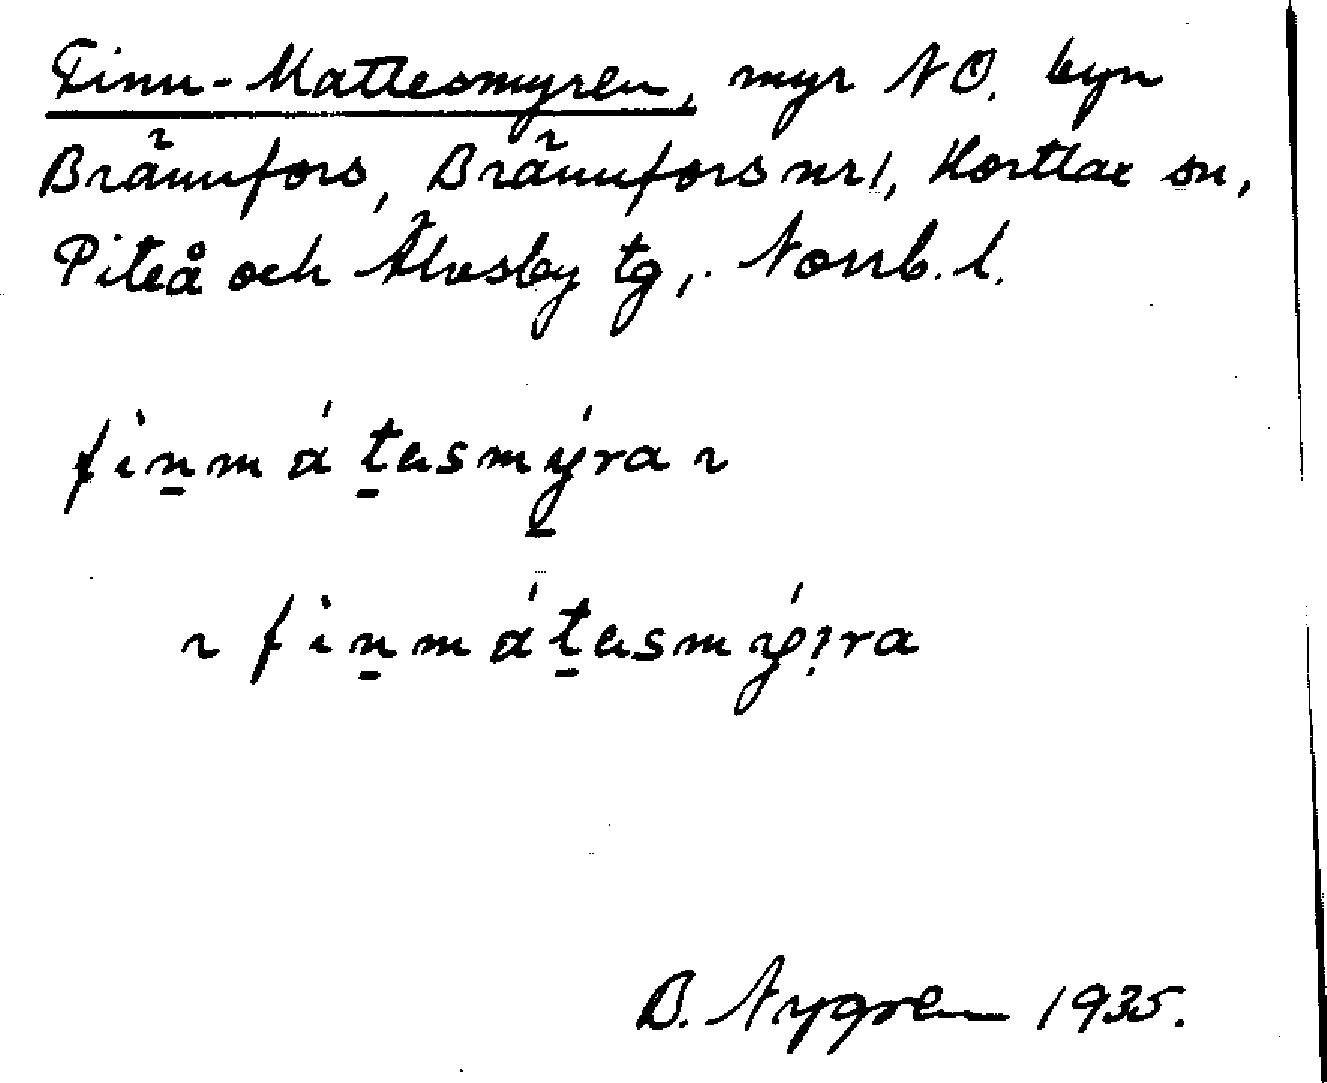 Finn-Mattesmyren, myr NO. byn
Brännfors, Brännfors nr 1, Hortlax sn,
Piteå och Älvsby tg, Norrb. l.
fi̱nmátasmýra ~
~ finmátasmýra
B. Nygren 1935.